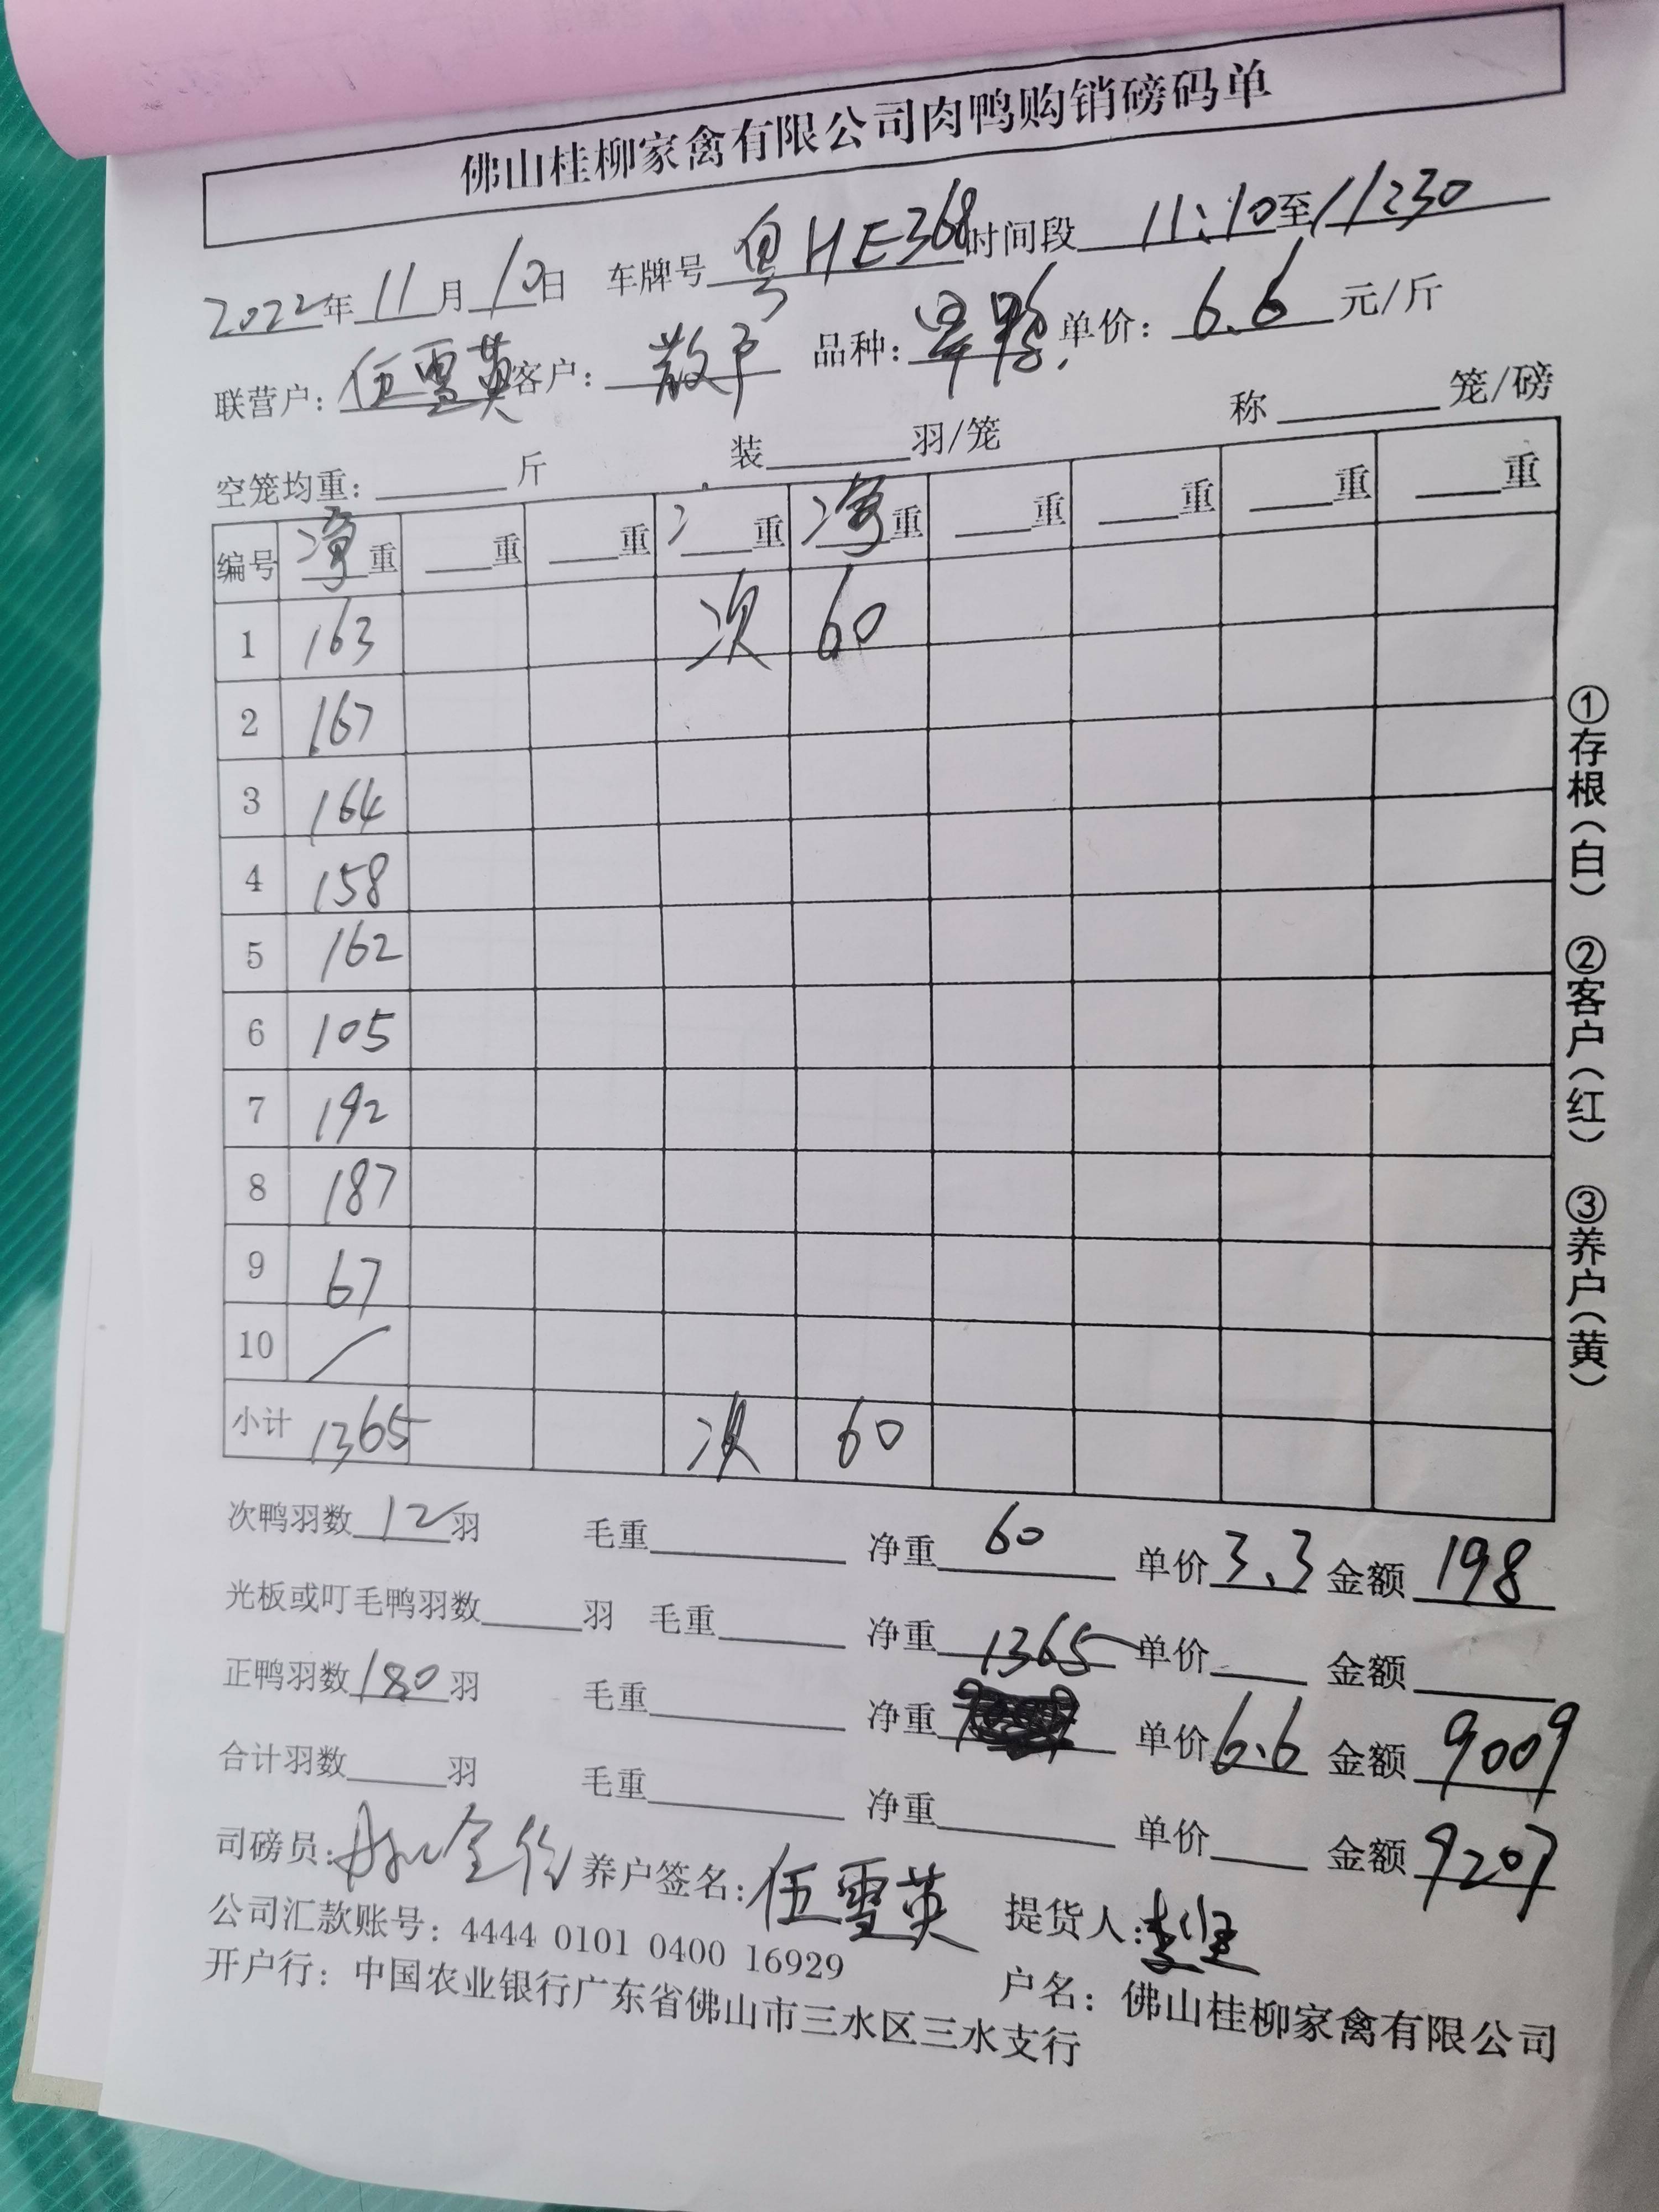 佛山桂柳家禽有限公司肉鸭购销磅码单
2022年11月10日 车牌号粤HE368时间段11:10至11230
联营户:伍雪英客户:散户 品种:旱鸭单价:6.6元/斤
空笼均重:____斤 装____羽/笼 称____笼/磅
编号 净重 __重 __重 __重 净重 __重 __重 __重 __重
1 163 次 60
2 167
3 164
4 158
5 162
6 105
7 192
8 187
9 67
10 /
小计 1365 次 60
次鸭羽数12羽 毛重____ 净重60 单价3.3金额198
光板或叮毛鸭羽数____羽 毛重____ 净重1365单价____金额____
正鸭羽数180羽 毛重____ 净重____ 单价6.6金额9009
合计羽数____羽 毛重____ 净重____ 单价____金额9207
司磅员: 养户签名:伍雪英 提货人:
公司汇款账号:4444 0101 0400 16929 户名:佛山桂柳家禽有限公司
开户行:中国农业银行广东省佛山市三水区三水支行
①存根(白) ②客户(红) ③养户(黄)